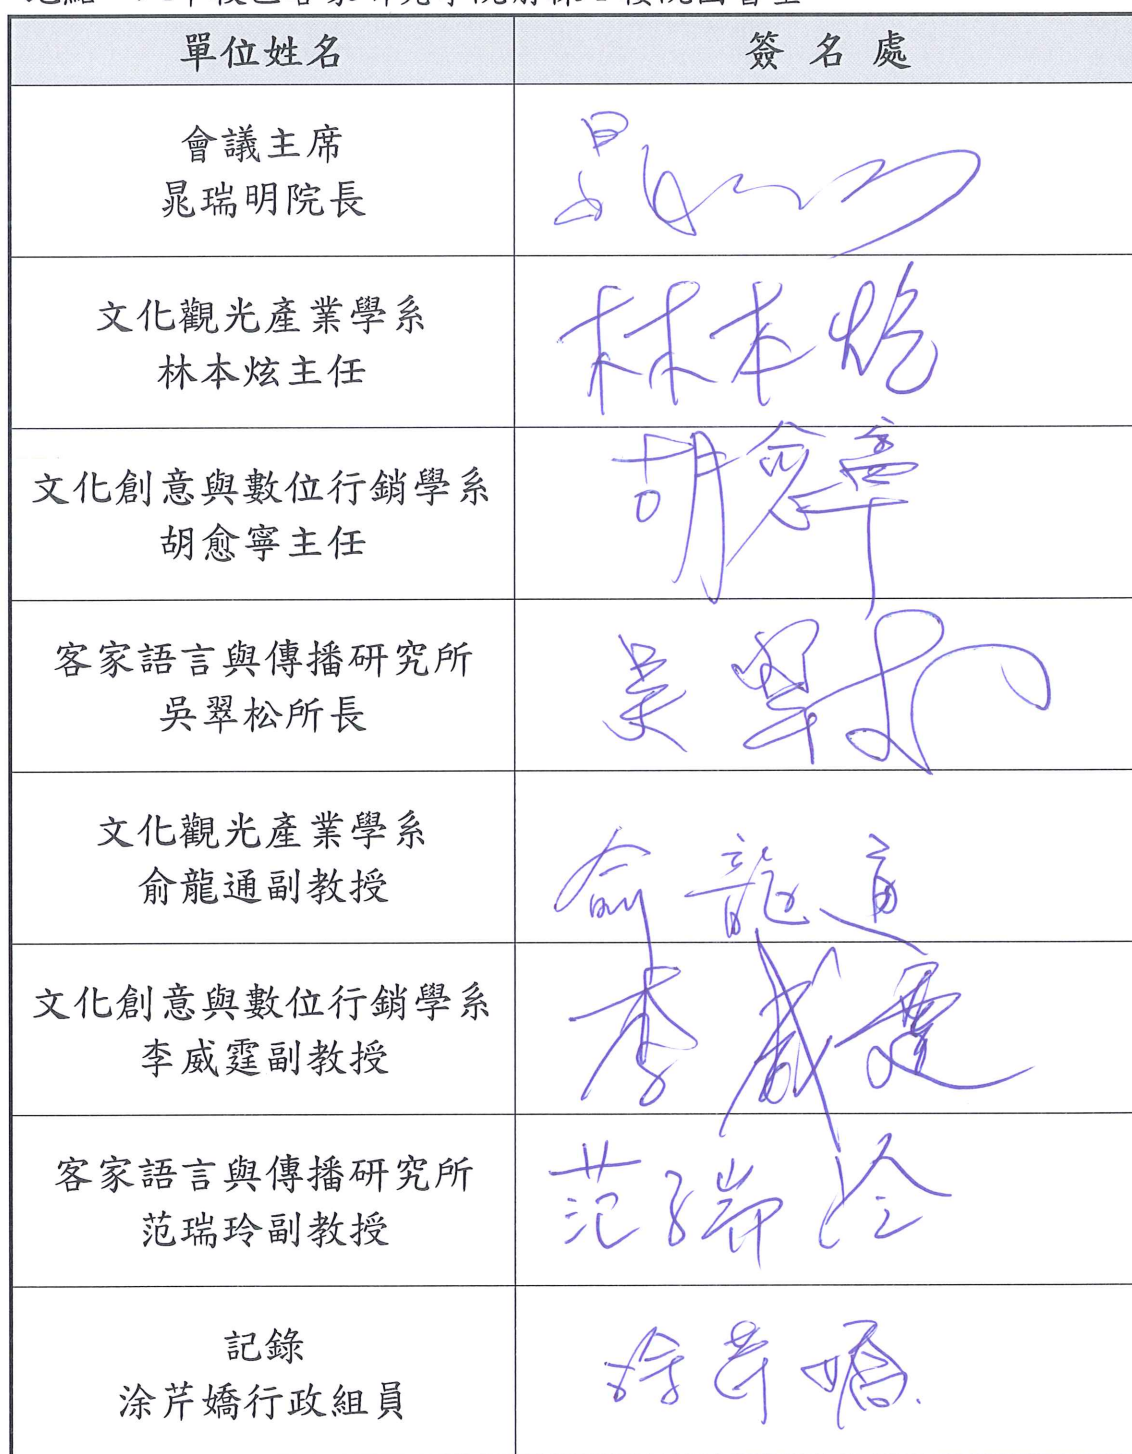 單位姓名
簽名處
會議主席
晁瑞明院長
文化觀光產業學系
林本炫主任
林本炫
文化創意與數位行銷學系
胡愈寧主任
胡愈寧
客家語言與傳播研究所
吳翠松所長
吳翠松
文化觀光產業學系
俞龍通副教授
俞龍通
文化創意與數位行銷學系
李威霆副教授
李威霆
客家語言與傳播研究所
范瑞玲副教授
范瑞玲
記錄
涂芹嬌行政組員
涂芹嬌